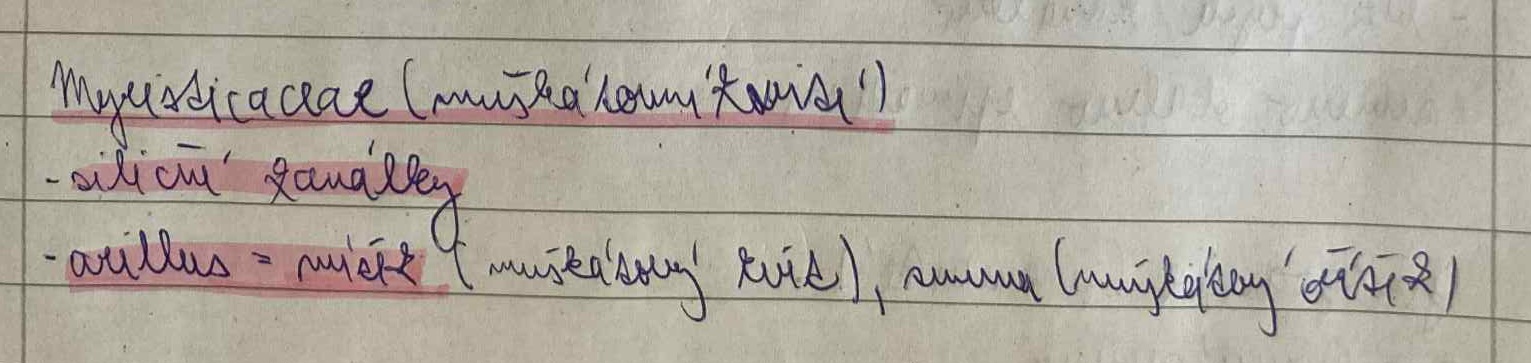 Myristicaceae (muškátovníkovité)
- siličné kanálky
- arillus = míšek (muškátový květ), semena (muškátový oříšek)